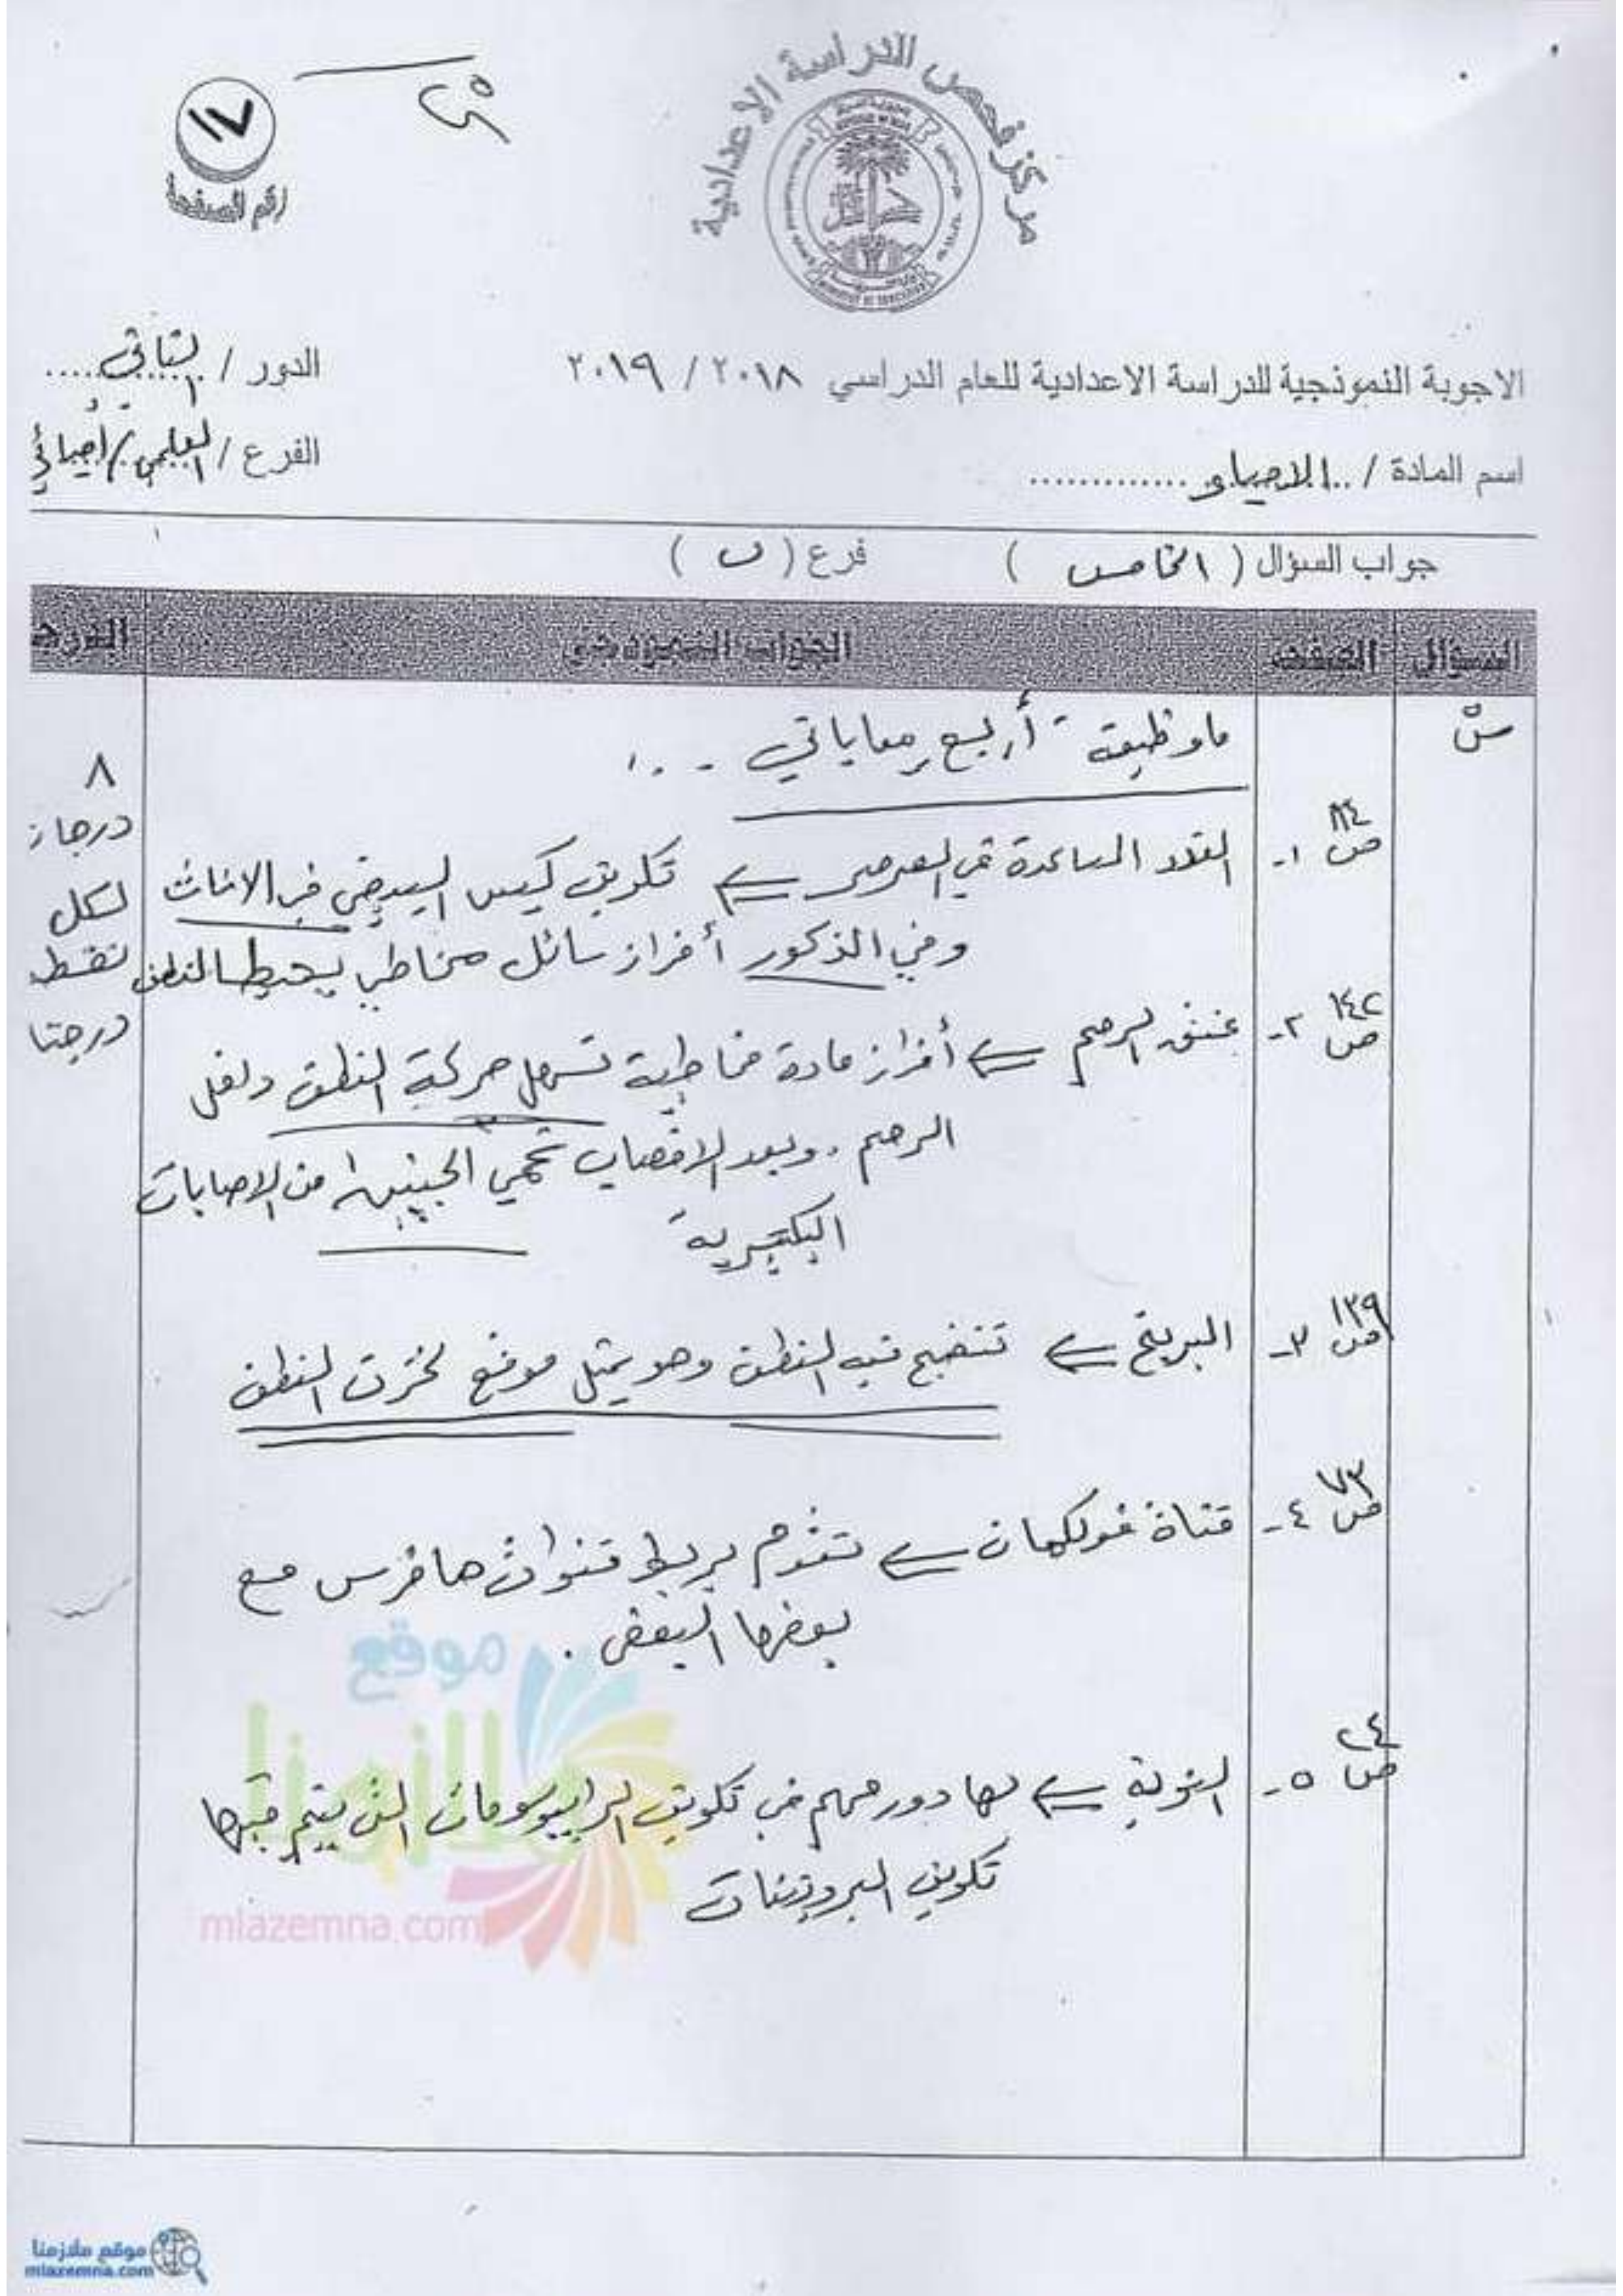 مركز فحص الدراسة الاعدادية
١٧
رقم الصفحة
الاجوبة النموذجية للدراسة الاعدادية للعام الدراسي ٢٠١٨ / ٢٠١٩
الدور / الثاني
اسم المادة / الاحياء
الفرع / العلمي / احيائي
جواب السؤال ( الخامس ) فرع ( ب )
السؤال الصفحة الجواب النموذجي الدرجة
ما وظيفة أربع مما ياتي
٨
درجات
لكل
نقطة
درجتا
ص ١١٤ ١- الغدد المساعدة في الصرصر ⇐ تكوين كيس البيض في الاناث
وفي الذكور أفراز سائل مخاطي يحيط النطف
ص ١٤٢ ٢- عنق الرحم ⇐ أفراز مادة مخاطية تسهل حركة النطف داخل
الرحم . وبعد الاخصاب تحمي الجنين من الاصابات
البكتيرية
ص ١٣٩ ٣- البربخ ⇐ تنضج فيه النطف وهو يمثل موقع لخزن النطف
ص ٧٣ ٤- قناة فولكمان ⇐ تقوم بربط قنوات هافرس مع
بعضها البعض .
ص ٢٤ ٥- النوية ⇐ لها دور مهم في تكوين الرايبوسومات التي يتم فيها
تكوين البروتينات
موقع
ملازمنا
mlazemna.com
موقع ملازمنا
mlazemna.com